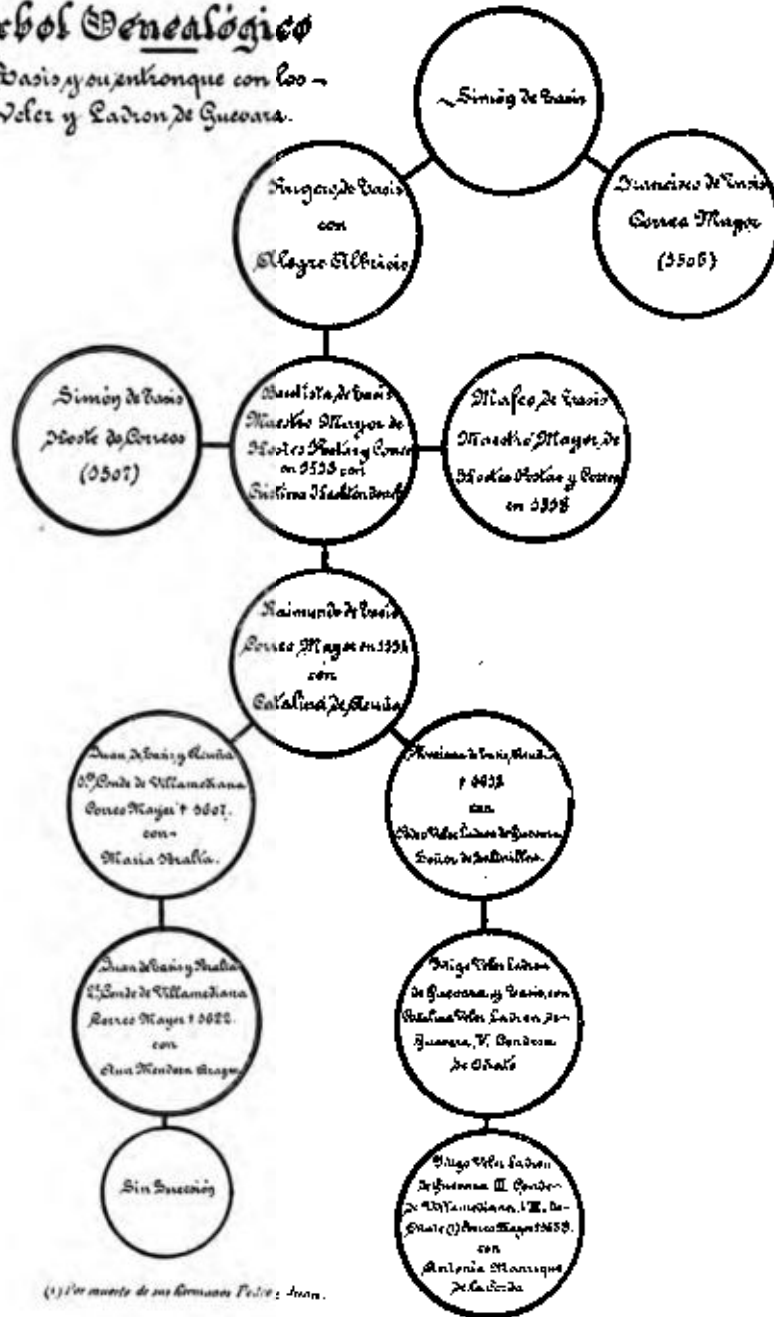 rbol Genealógico
Tasis y su entronque con los
Velez y Ladron de Guevara.
Simón de Tasis
Rugero de Tasis
con
Alegre Albricio
Francisco de Tasis
Correo Mayor
(1506)
Simón de Tasis
Hoste de Correos
(1507)
Bautista de Tasis
Maestro Mayor de
Hostes Postas y Correos
en
con
Cristina
Mafeo de Tasis
Maestro Mayor de
Hostes Postas y Correos
en
Raimundo de Tasis
Correo Mayor en
con
Catalina de Acuña
Juan de Tasis y Acuña
1º Conde de Villamediana
Correo Mayor † 1607.
con
Maria Peralta.
Mariana de Tasis Acuña
†
con
Pedro Velez Ladron de Guevara
Señor de Salinillas.
Juan de Tasis y Peralta
2º Conde de Villamediana
Correo Mayor † 1622.
con
Ana Mendoza
Iñigo Velez Ladron
de Guevara y Tasis, con
Catalina Velez Ladron de
Guevara, V. Condesa
de Oñate
Sin Sucesión
Iñigo Velez Ladron
de Guevara III Conde
de Villamediana, de
Oñate (1) Correo Mayor
con
Antonia Manrique
de la Cerda
(1) Por muerte de sus hermanos Pedro y Juan.